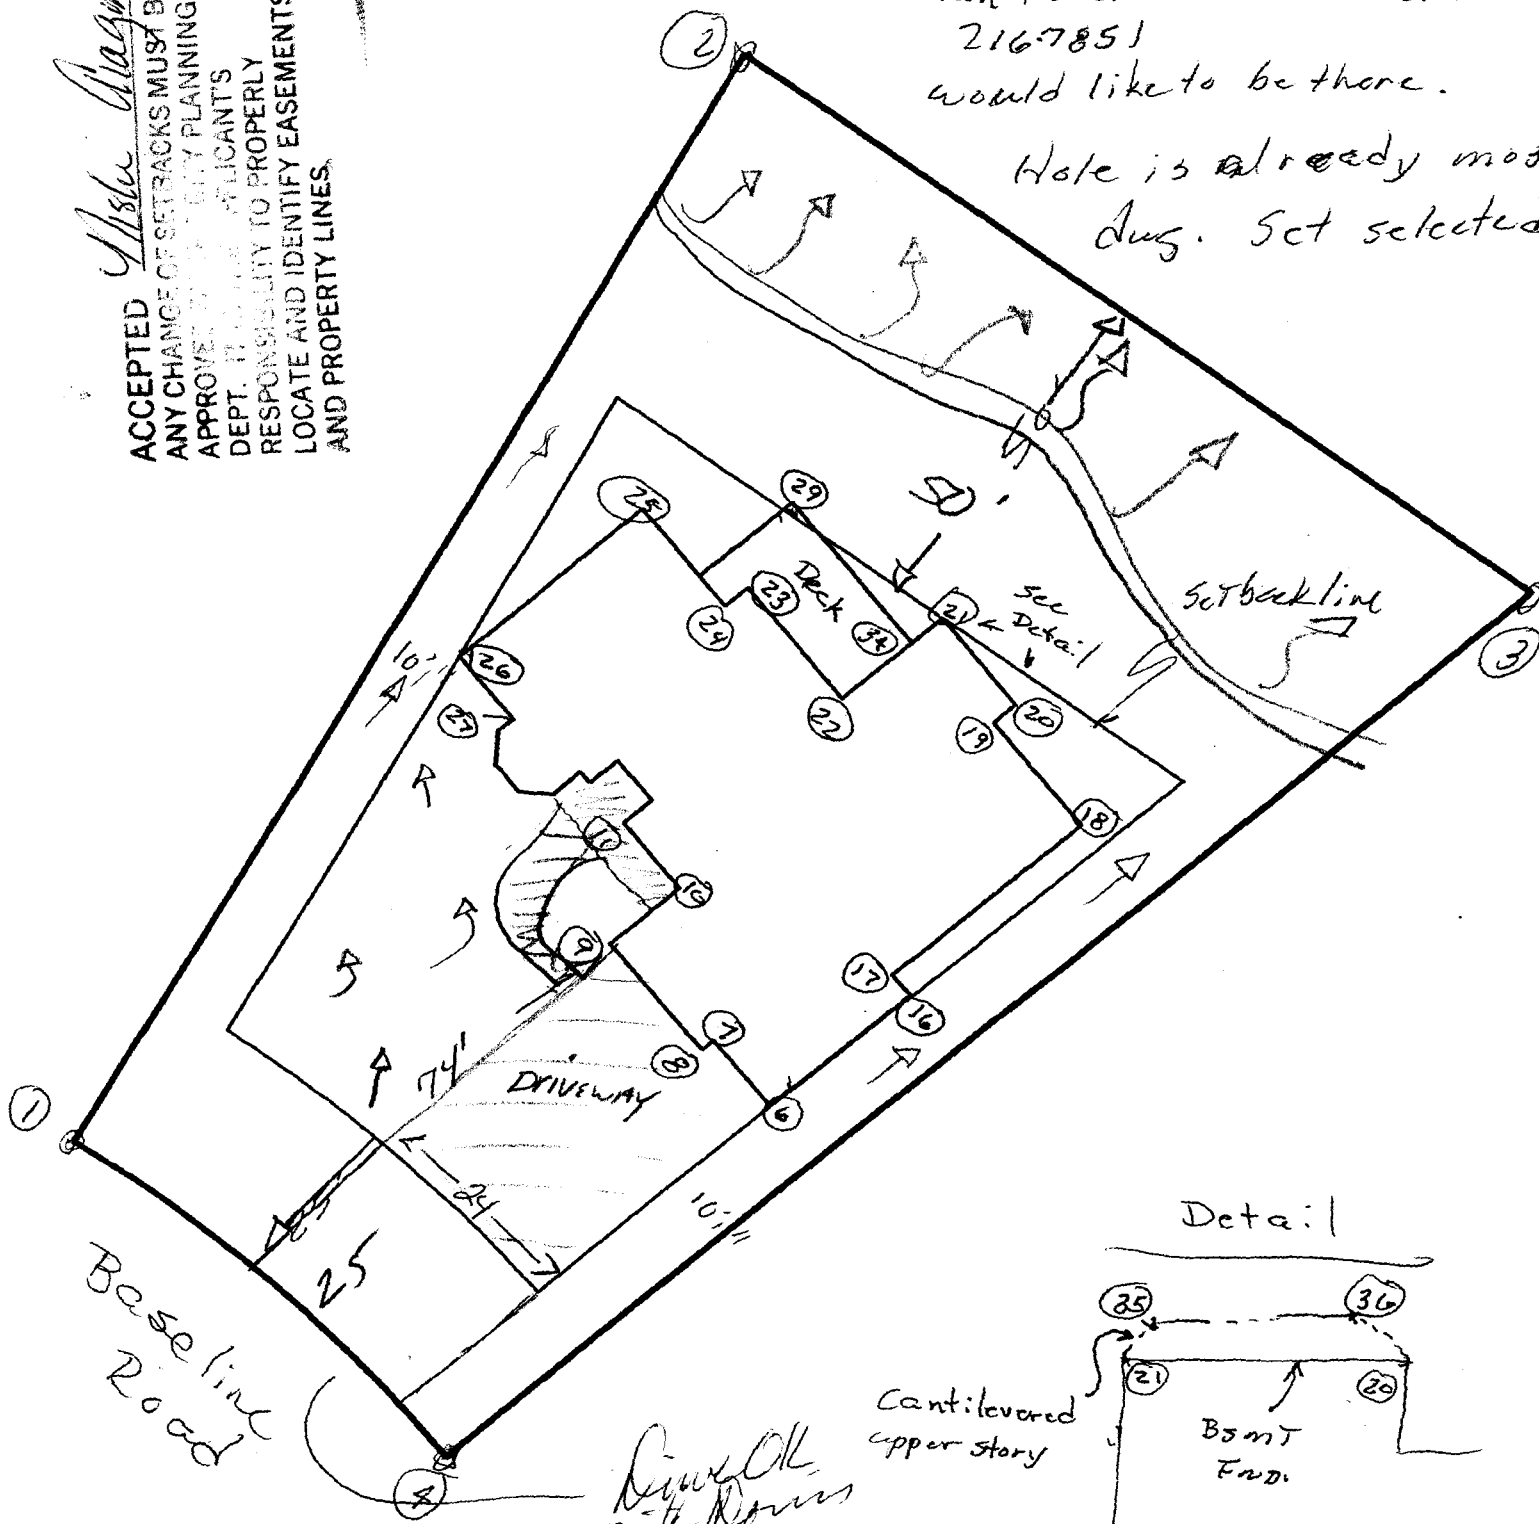 ACCEPTED
ANY CHANGE OF SETBACKS MUST B
APPROVE PLANNING
DEPT. APPLICANT'S
RESPONSIBILITY TO PROPERLY
LOCATE AND IDENTIFY EASEMENTS
AND PROPERTY LINES.
216-7851
would like to be there.
Hole is already mos
dug. Set selected
2
29
25
50'
Deck
23
21
see
Detail
Setback line
24
34
3
10'
26
22
20
27
19
18
11
10
9
17
7
16
8
74'
DRIVEWAY
6
1
24
10'
25
Baseline
Road
4
Drive OK
Detail
35
36
21
20
Cantilevered
upper story
BSMT
FND.